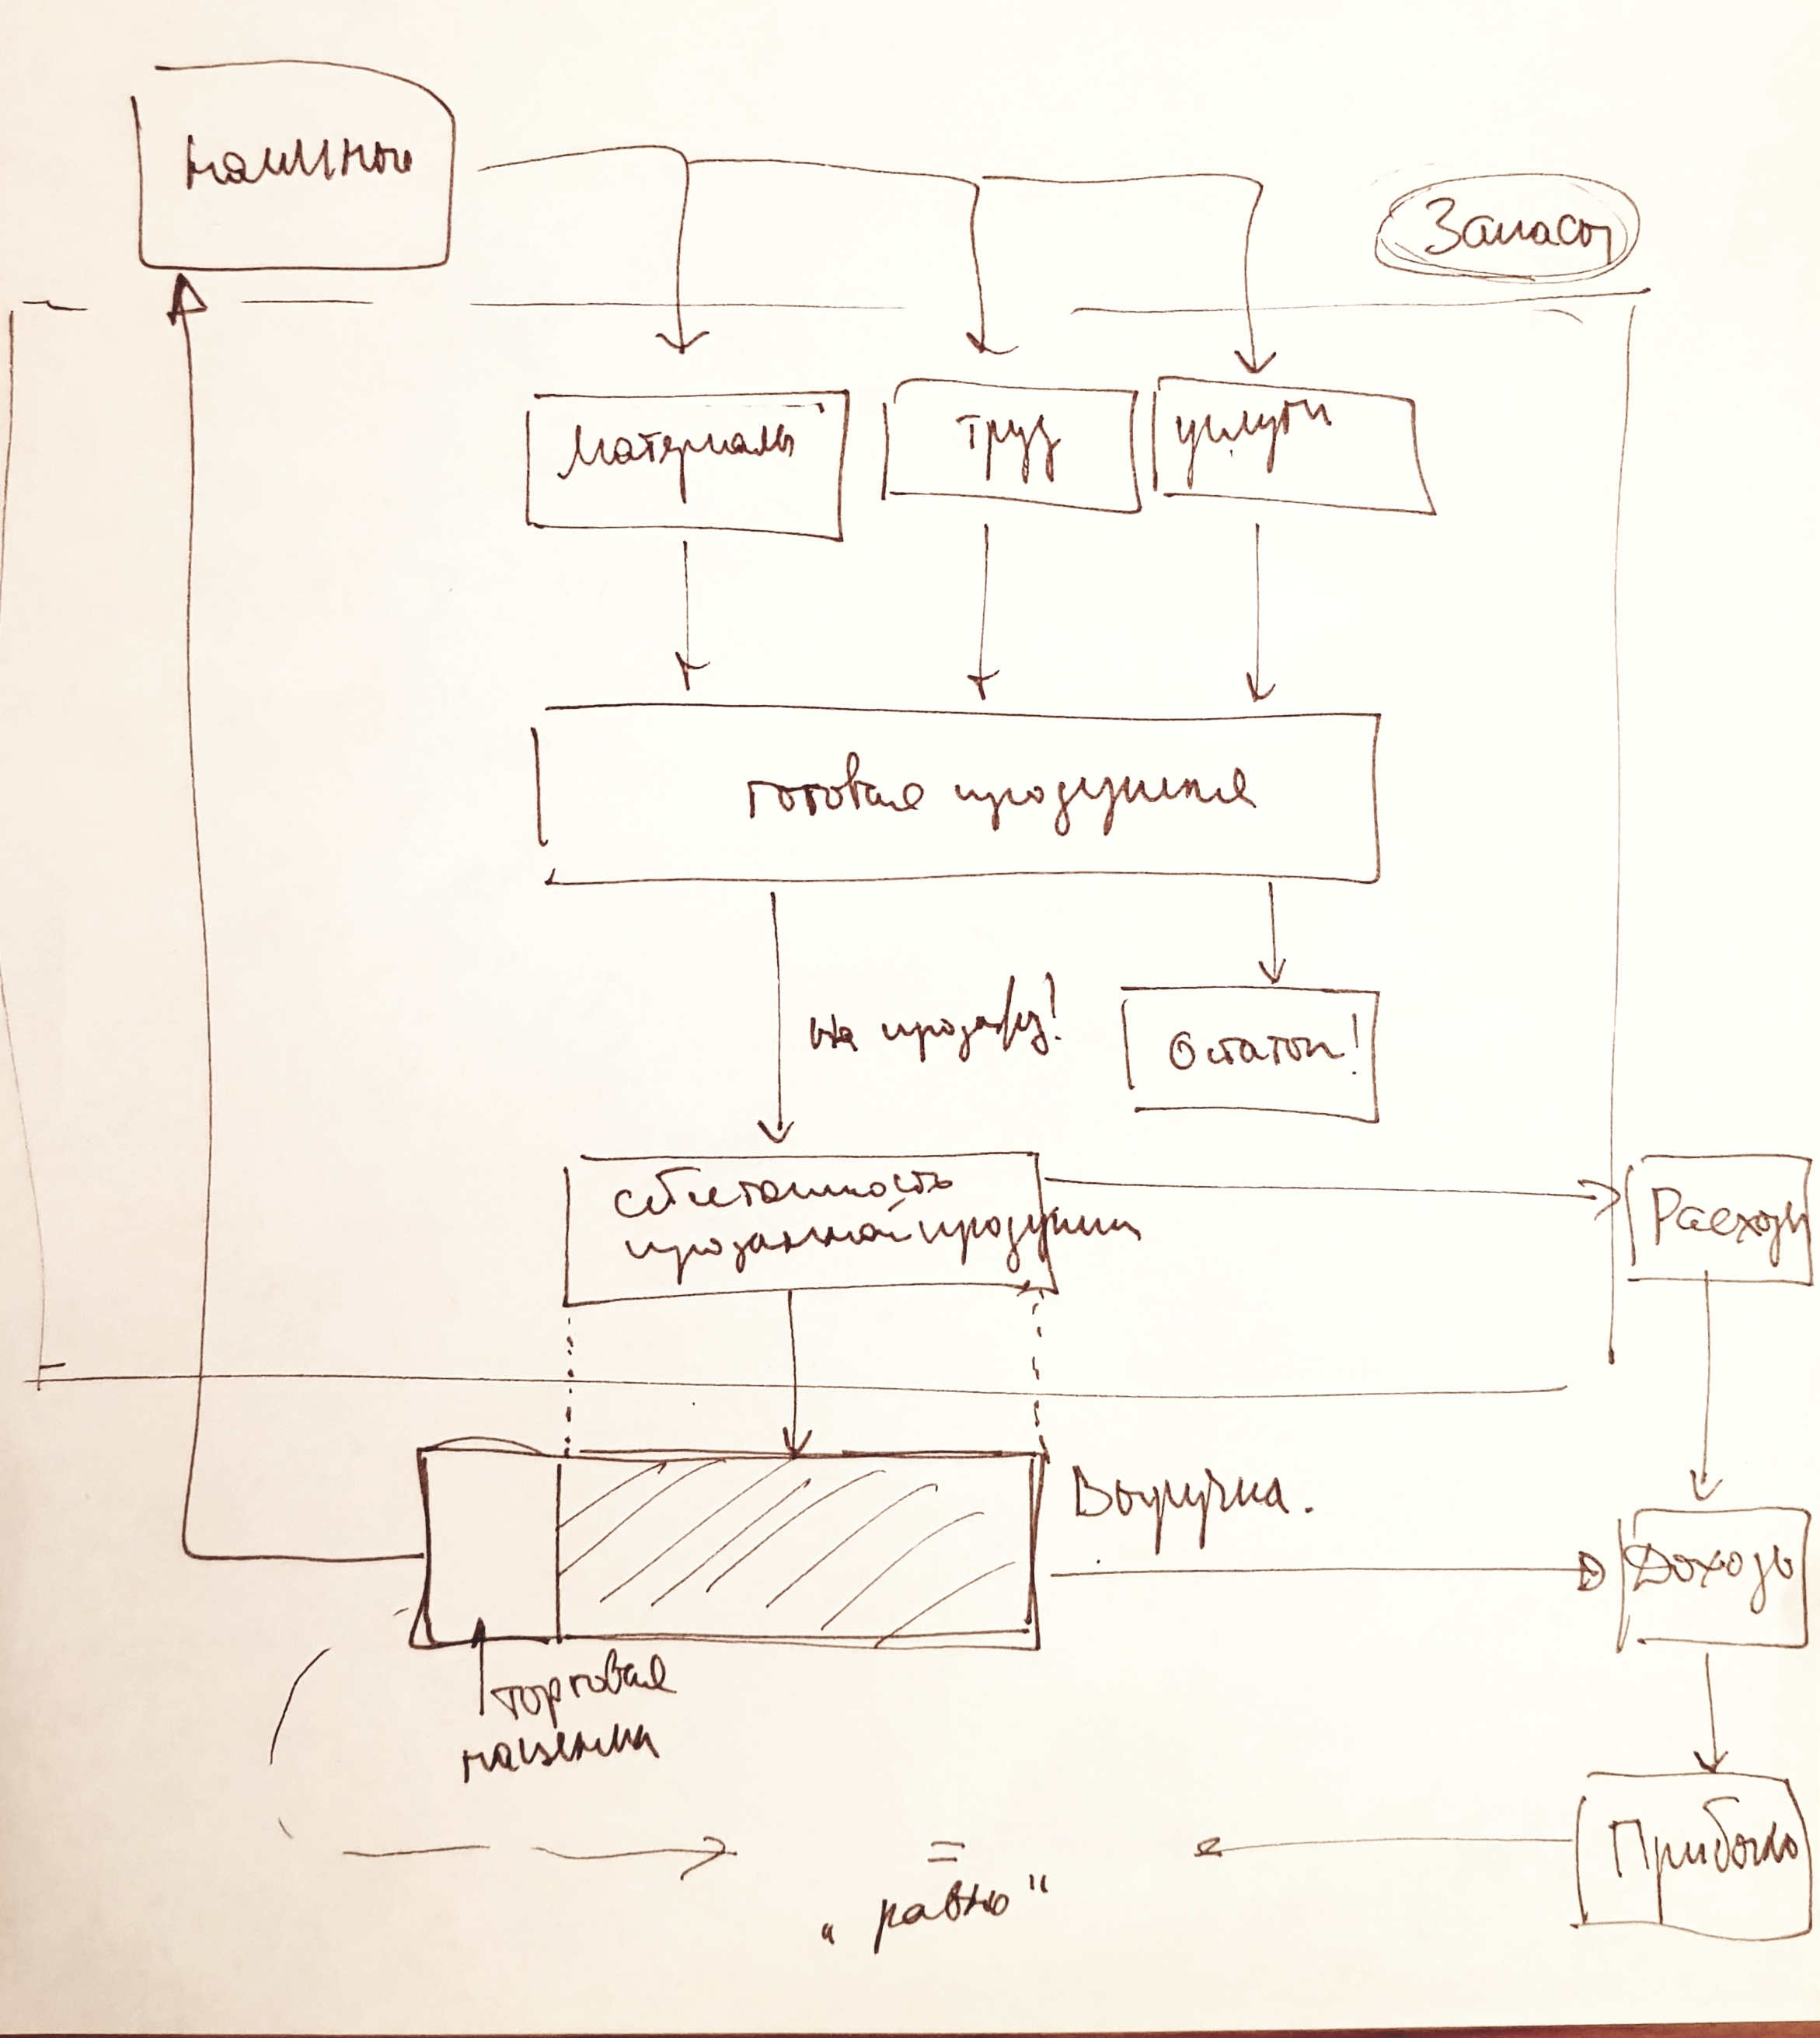 наличные
Запасы
материалы
труд
услуги
готовая продукция
на продажу!
Остаток!
себестоимость
проданной продукции
Расходы
Выручка.
Доходы
торговая
наценка
Прибыль
=
„равно"